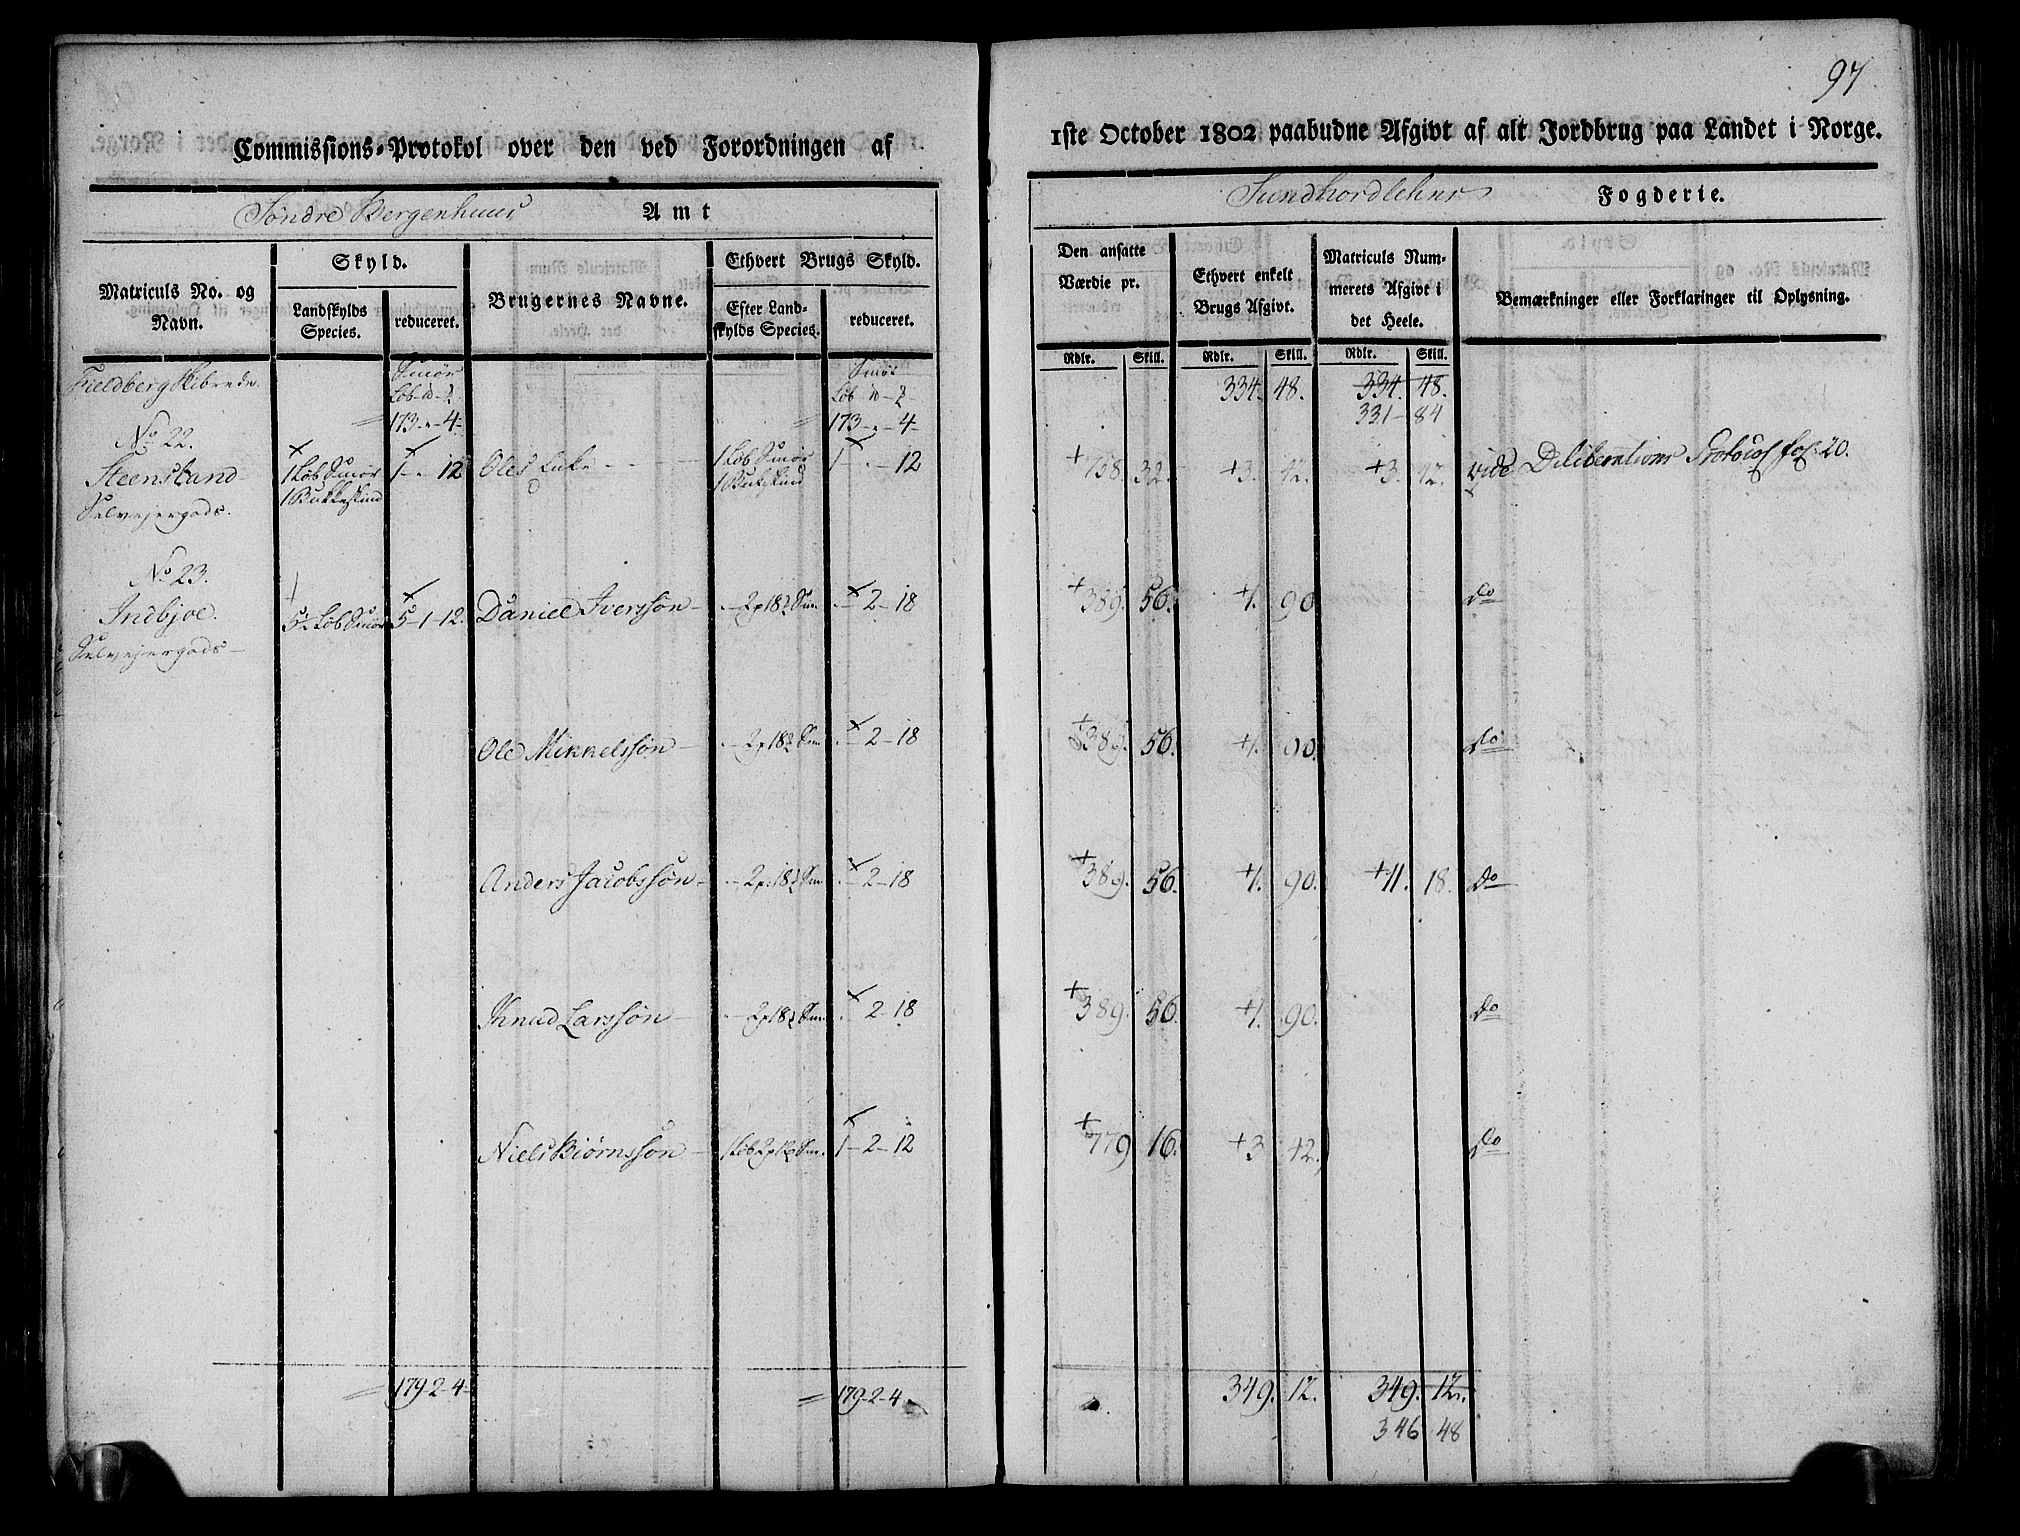 97
Commissions-Protokol over den ved Forordningen af
1ste October 1802 paabudne Afgivt af alt Jordbrug paa Landet i Norge.
Søndre Bergenhuus Amt
Sundhordlehns Fogderie.
Matriculs No. og Navn.
Skyld.
Landskylds Species.
reduceret.
Brugernes Navne.
Ethvert Brugs Skyld.
Efter Landskylds Species.
reduceret.
Den ansatte Værdie pr.
Rdlr. Skill.
Ethvert enkelt Brugs Afgivt.
Rdlr. Skill.
Matriculs Nummerets Afgivt i det Heele.
Rdlr. Skill.
Bemærkninger eller Forklaringer til Oplysning.
Fieldberg Skibrede.
Smør Smør
173 - 4 173 - 4 334. 48. 334. 48.
331 - 84
No 22.
Steensland 1 Løb Smør 1 - 12 Ole 1 Løb Smør 1 - 12 +758. 32. +3. 42. +3. 42. vide Deliberations Protocol fol. 20.
1 Bukkeskind 1 Bukskind
Selvejergods.
No 23.
Indbjoe. 5 Løb Smør 5-1-12. Daniel Iverssøn 2 p 18 Sm. 2-18 +389. 56. +1. 90. Do
Selvejergods
Ole Mikkelssøn 2 p 18 Sm. 2-18 +389. 56. +1. 90. Do
Anders Jacobssøn 2 p 18 Sm. 2-18 +389. 56. +1. 90. +11. 18. Do
Knud Larssøn 2 p 18 Sm. 2-18 +389. 56. +1. 90. Do
Niels Biørnssøn 1 Løb 2 p 12 Sm. 1-2-12 +779 16. +3 42. Do
179-2-4 179-2-4 349. 12. 349. 12.
346 48